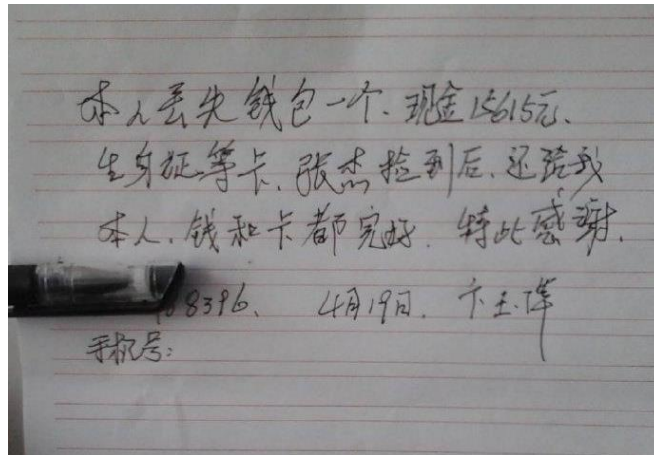 本人丢失钱包一个、现金15615元、
生身证等卡、张杰捡到后、还给我
本人、钱和卡都完好、特此感谢、
8396、 4月19日、 卞玉
手机号：